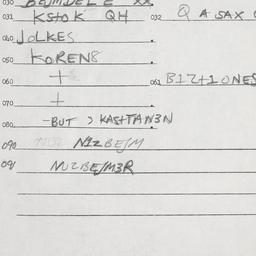 031 KStOK QH 032 Q A SAX
040 JOLKES
050 KORENS
060 + 061 B1Z+1ONES
070 +
080 -BUT > KASHTAN3N
090 N1ZBEJM
091 NUZBEJM3R